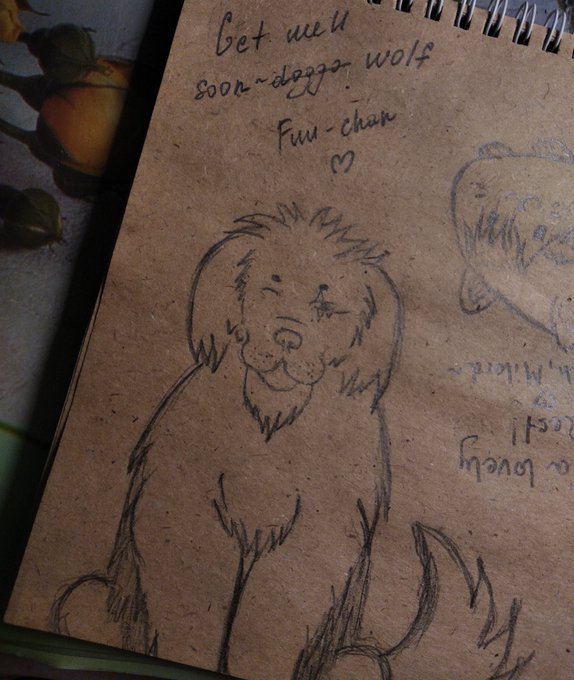 Get well
soon~ doggo wolf
Fuu-chan
♡
a lovely
Rest!
Milord~